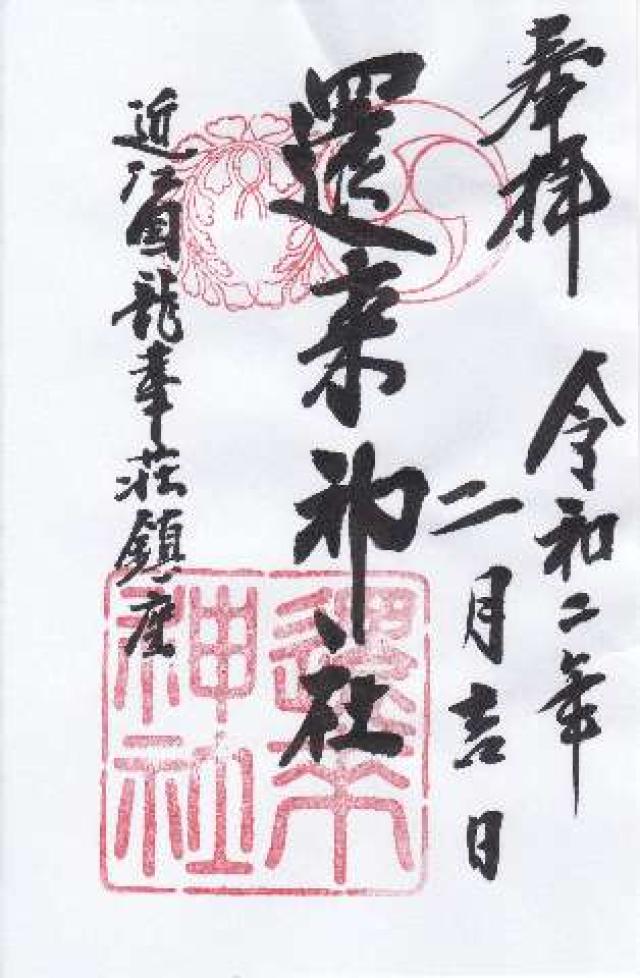 奉拝
令和二年
二月吉日
還来神社
近江國龍華荘鎮座
還来神社